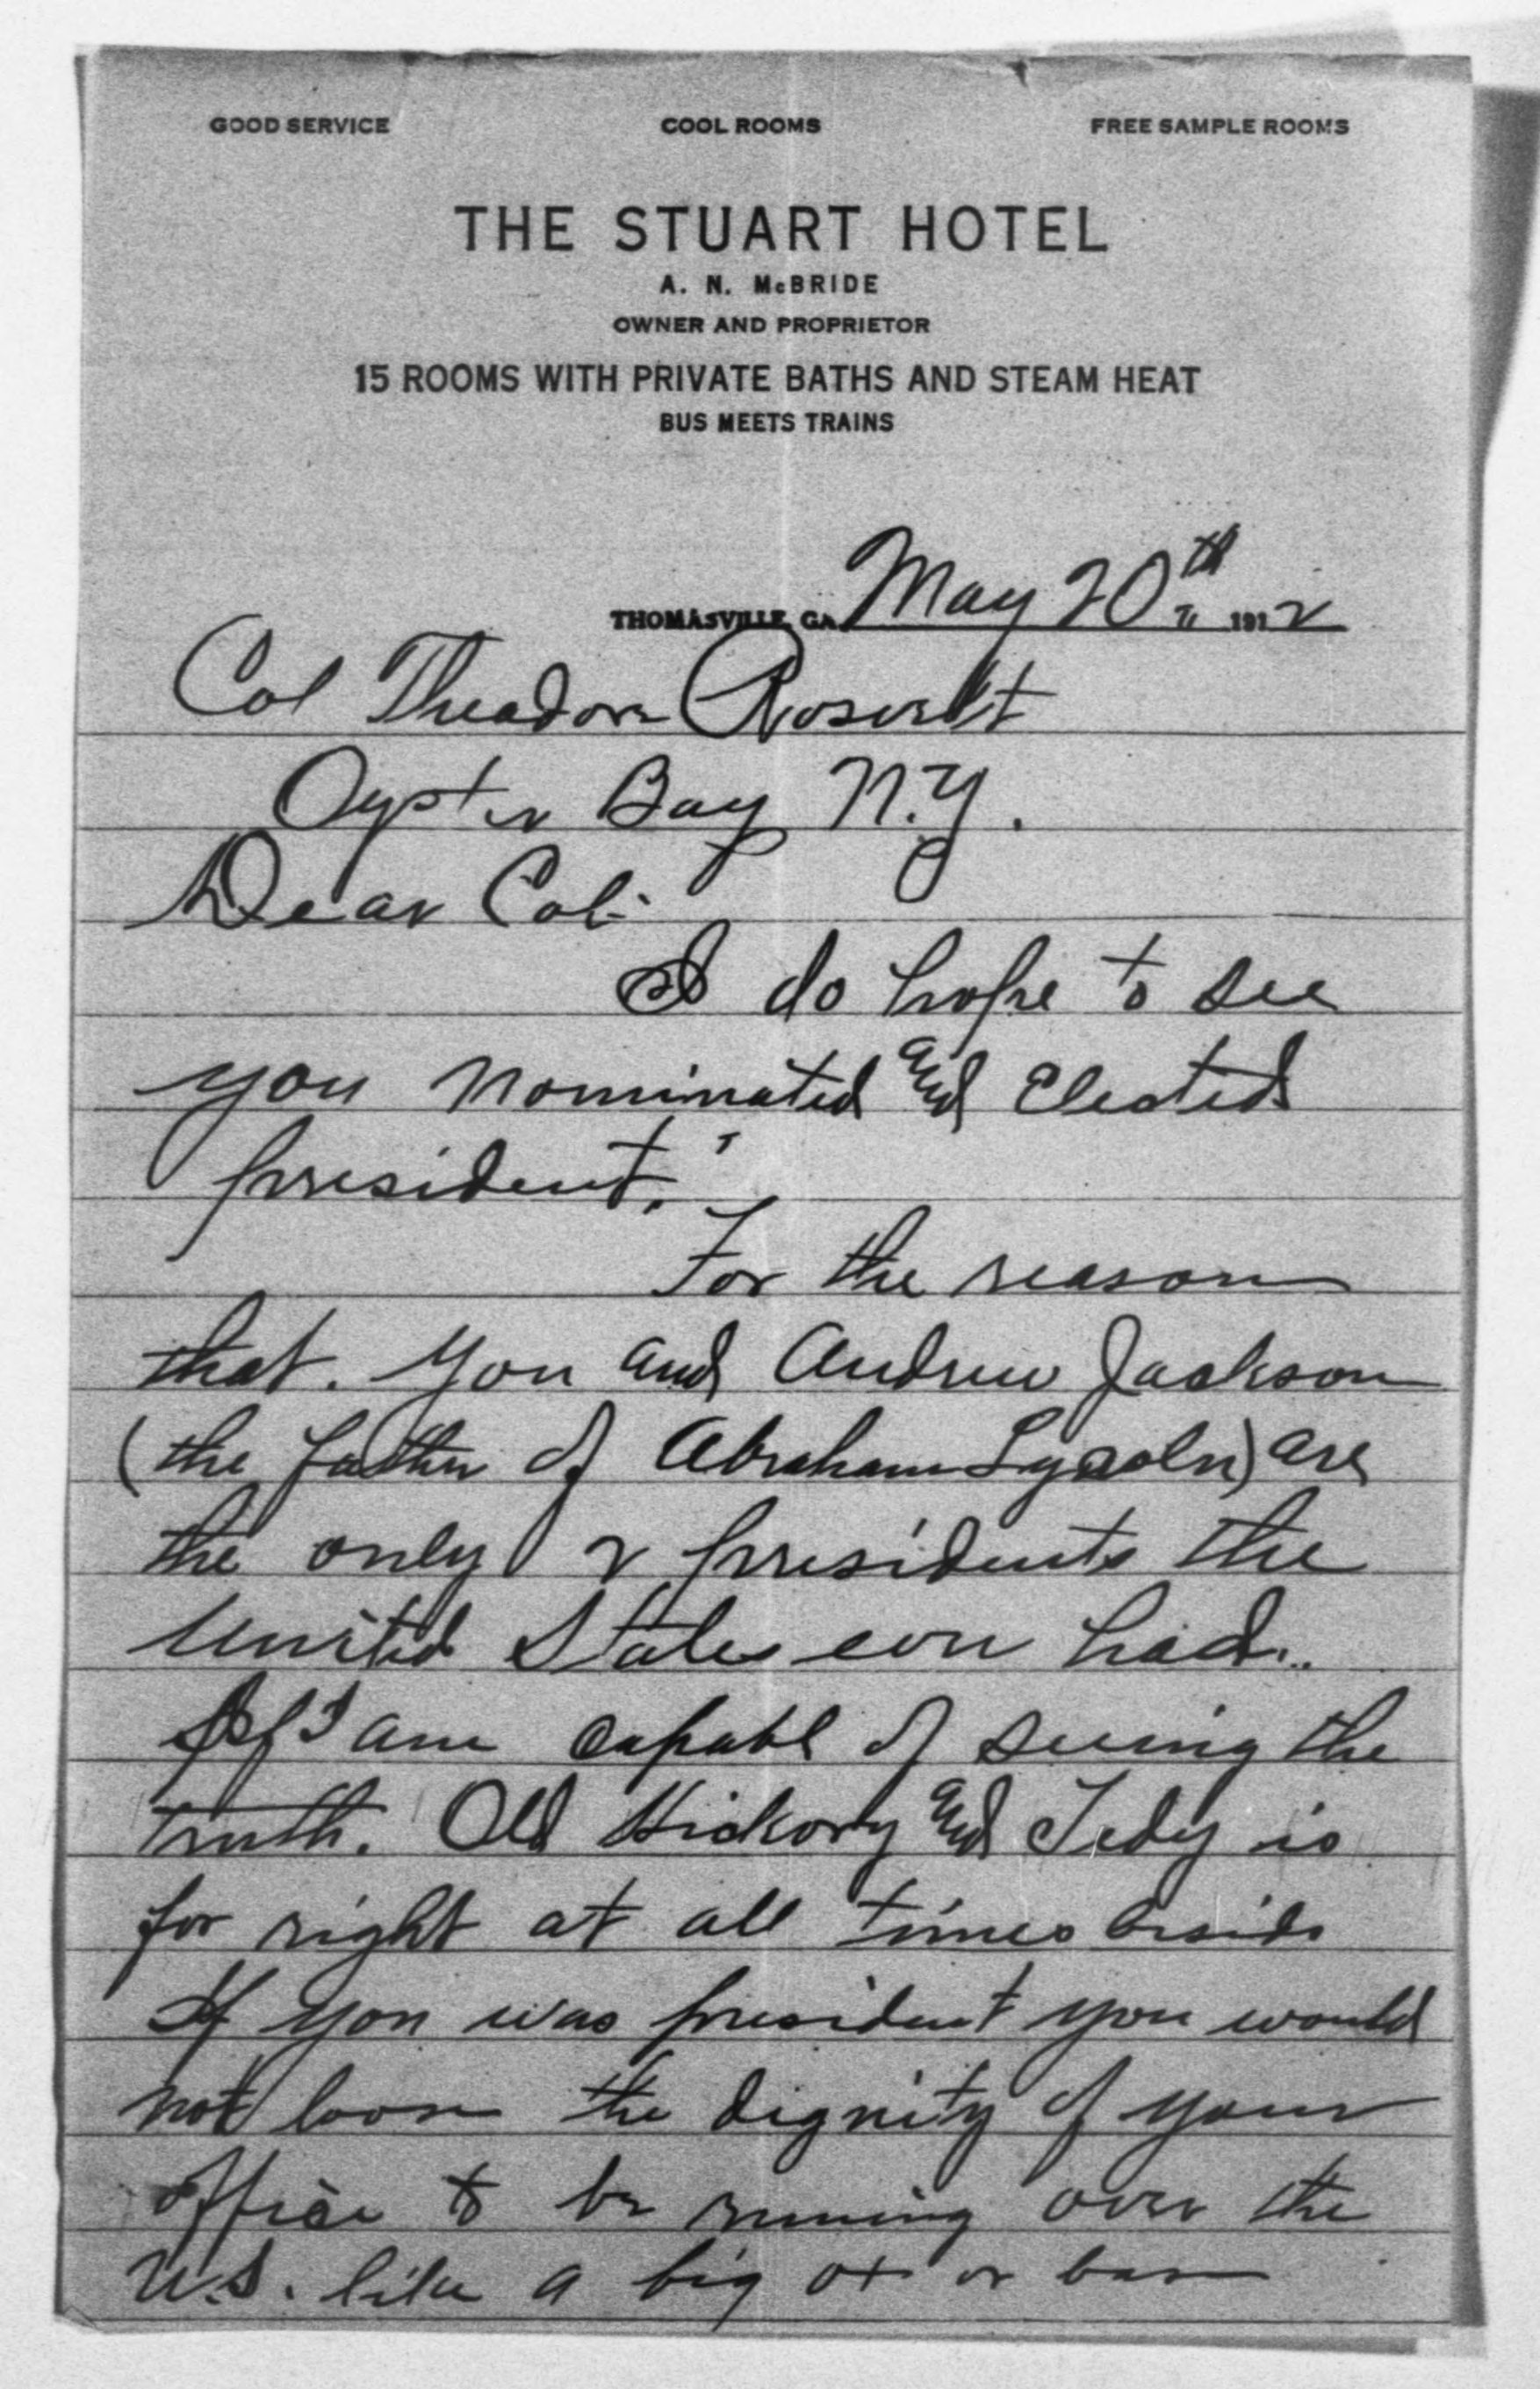 GOOD SERVICE COOL ROOMS FREE SAMPLE ROOMS
THE STUART HOTEL
A. N. McBRIDE
OWNER AND PROPRIETOR
15 ROOMS WITH PRIVATE BATHS AND STEAM HEAT
BUS MEETS TRAINS
THOMASVILLE, GA. May 20th 1912
Col Theadore Rosevelt
Oyster Bay N.Y.
Dear Col:
I do hope to see
you nominated and Elected
president.
For the reason
that. You and Andrew Jackson
(the father of Abraham Lycoln) are
the only 2 presidents the
United States ever had..
If I am capabl of seeing the
truth. Old Hickory and Tedy is
for right at all times beside
If you was president you would
not loose the dignity of your
office to be runing over the
U.S. like a big ox or